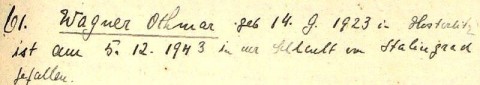 61. Wagner Othmar geb 14. 9. 1923 in Hosterlitz
ist am 5. 12. 1943 in der Schlacht von Stalingrad
gefallen.